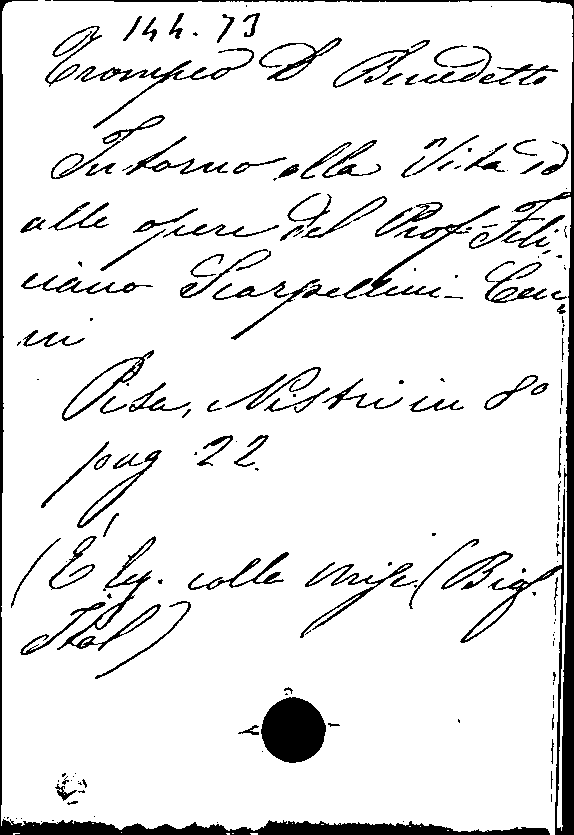 144.73
Trompeo D Benedetto
Intorno alla Vita ed
alle opere del Prof. Feli-
ciano Scarpellini - Cen-
ni
Pisa, Nistri in 8°
pag 22.
(È leg. colla
Ital)